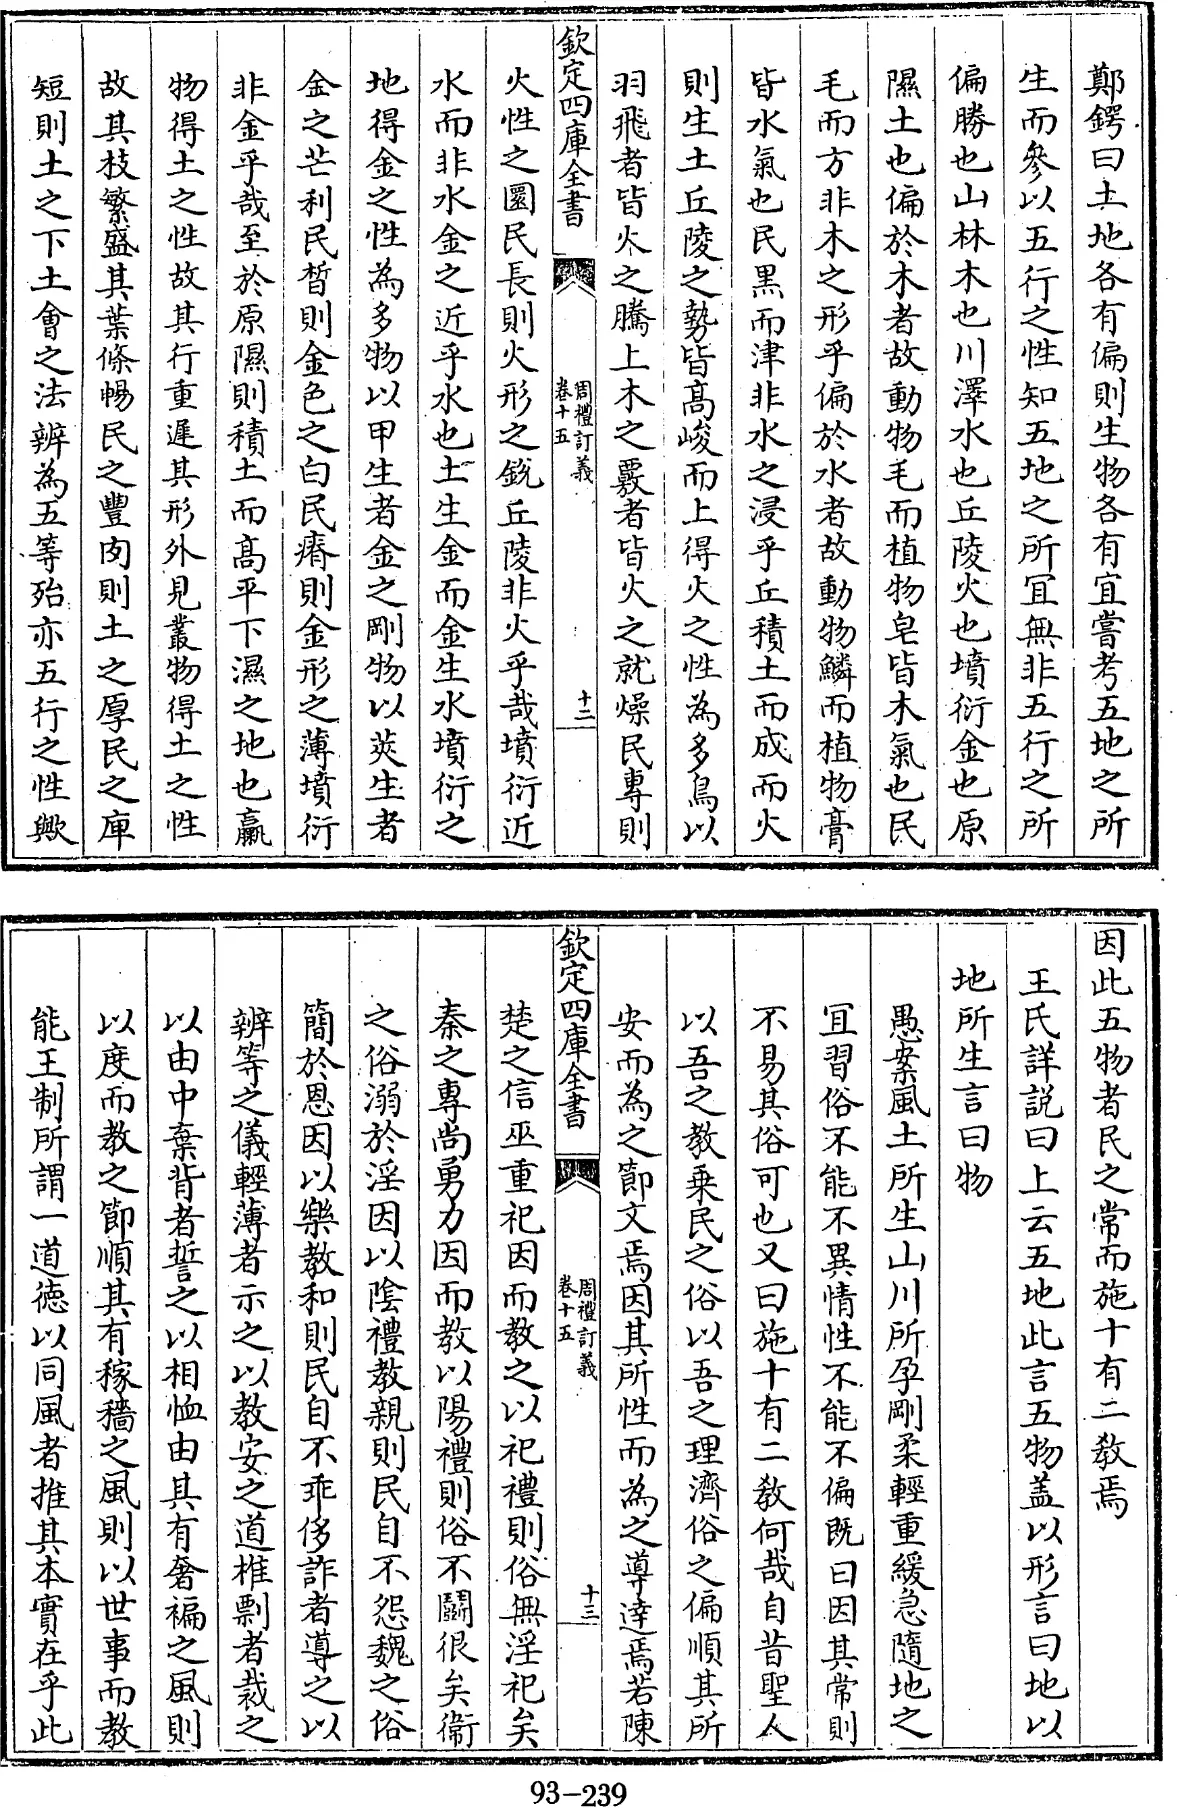 鄭鍔曰土地各有偏則生物各有宜嘗考五地之所
生而參以五行之性知五地之所宜無非五行之所
偏勝也山林木也川澤水也丘陵火也墳衍金也原
隰土也偏於木者故動物毛而植物皂皆木氣也民
毛而方非木之形乎偏於水者故動物鱗而植物膏
皆水氣也民黑而津非水之浸乎丘積土而成而火
則生土丘陵之勢皆髙峻而上得火之性為多鳥以
羽飛者皆火之騰上木之覈者皆火之就燥民專則
欽定四庫全書
周禮訂義
卷十五
十二
火性之圜民長則火形之銳丘陵非火乎哉墳衍近
水而非水金之近乎水也土生金而金生水墳衍之
地得金之性為多物以甲生者金之剛物以莢生者
金之芒利民晳則金色之白民瘠則金形之薄墳衍
非金乎哉至於原隰則積土而髙平下濕之地也臝
物得土之性故其行重遲其形外見叢物得土之性
故其枝繁盛其葉條暢民之豐肉則土之厚民之庳
短則土之下土會之法辨為五等殆亦五行之性歟
因此五物者民之常而施十有二敎焉
王氏詳説曰上云五地此言五物盖以形言曰地以
地所生言曰物
愚案風土所生山川所孕剛柔輕重緩急隨地之
宜習俗不能不異情性不能不偏既曰因其常則
不易其俗可也又曰施十有二敎何哉自昔聖人
以吾之敎乗民之俗以吾之理濟俗之偏順其所
安而為之節文焉因其所性而為之導達焉若陳
欽定四庫全書
周禮訂義
卷十五
十三
楚之信巫重祀因而教之以祀禮則俗無淫祀矣
秦之專尚勇力因而教以陽禮則俗不鬬很矣衞
之俗溺於淫因以陰禮教親則民自不怨魏之俗
簡於恩因以樂教和則民自不乖侈詐者導之以
辨等之儀輕薄者示之以教安之道椎剽者裁之
以由中棄背者誓之以相恤由其有奢褊之風則
以度而教之節順其有稼穡之風則以世事而教
能王制所謂一道德以同風者推其本實在乎此
93-239